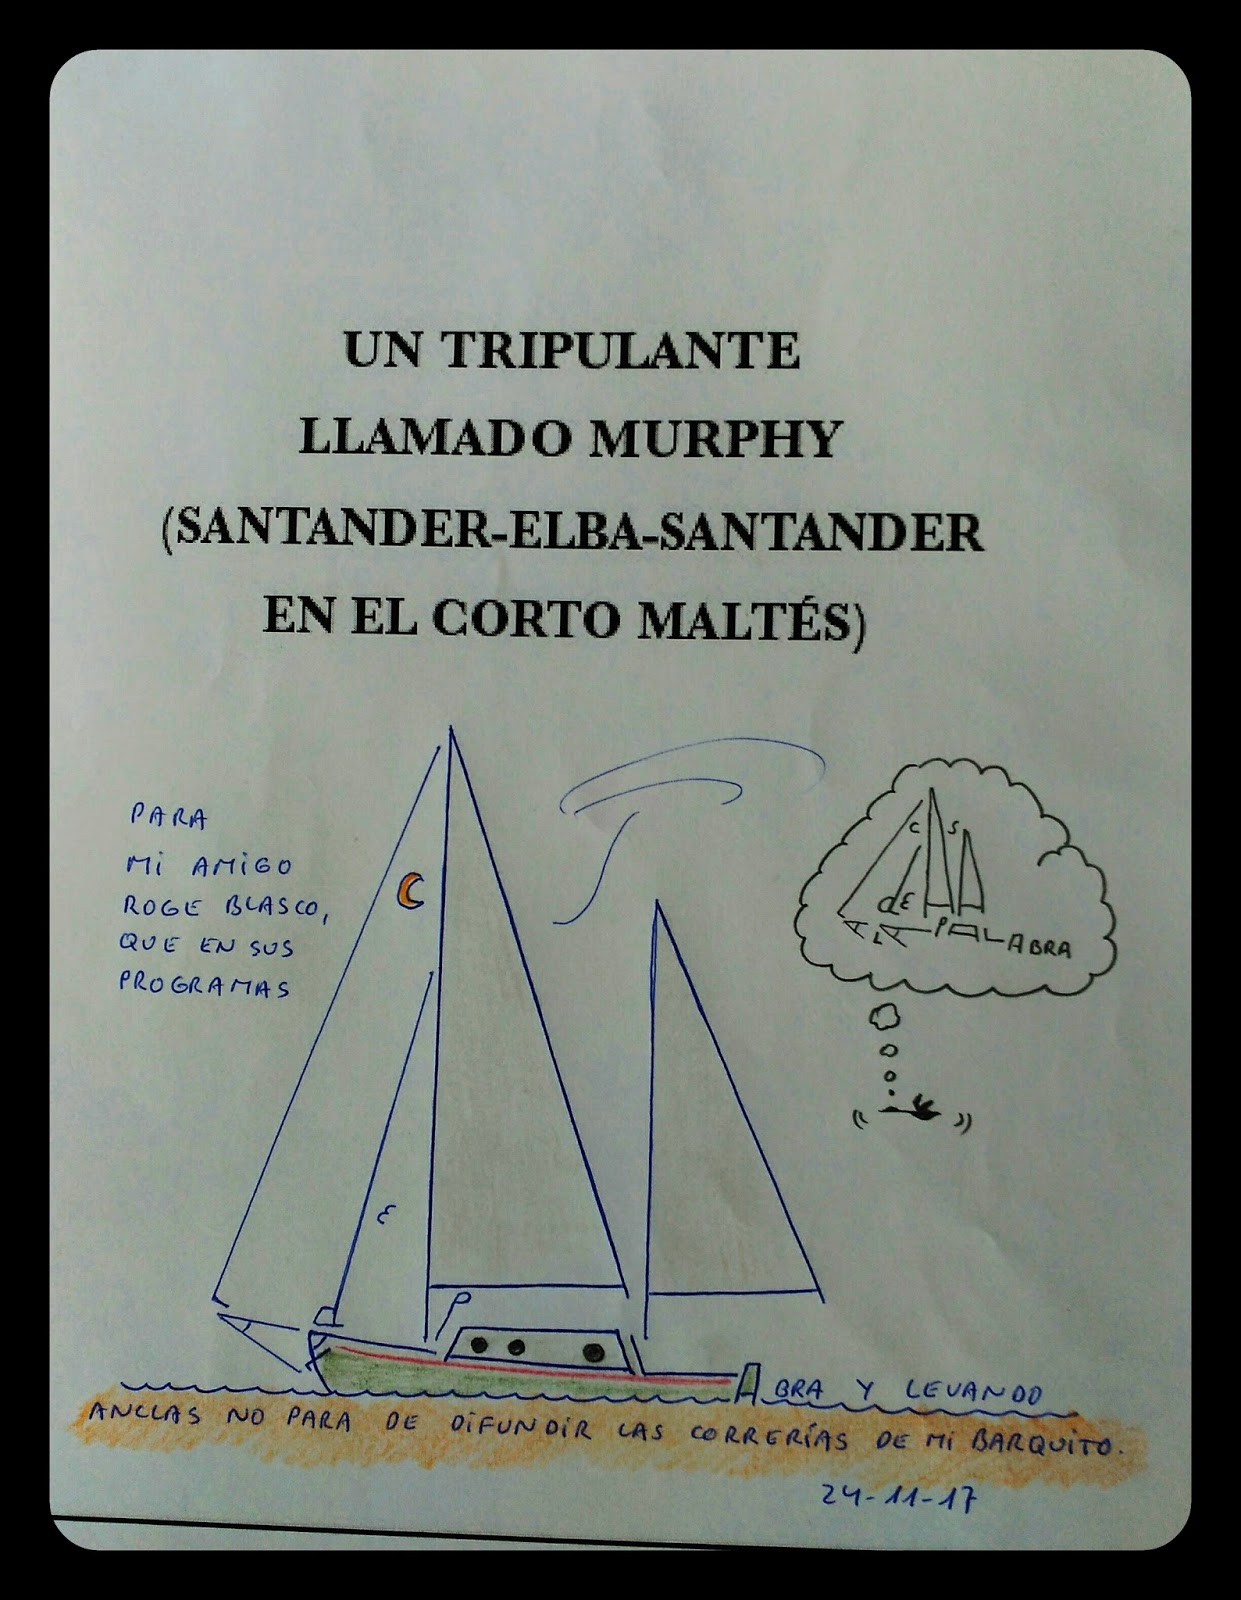 UN TRIPULANTE
LLAMADO MURPHY
(SANTANDER-ELBA-SANTANDER
EN EL CORTO MALTÉS)
PARA
Mi AMiGO
ROGE BLASCO,
QUE EN SUS
PROGRAMAS
C
E
P
C S
dE
A LA PALABRA
ABRA Y LEVANDO
ANCLAS NO PARA DE DiFUNDiR LAS CORRERÍAS DE Mi BARQUiTO.
24-11-17